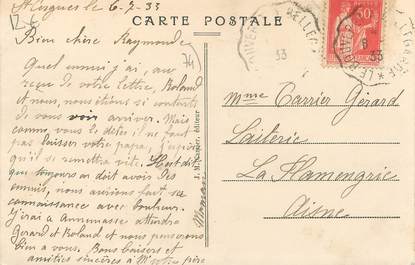 St Cergues le 6-7-33
12-€
CARTE POSTALE
Bien chère Raymonde
74
Quel ennui j'ai, au
reçu de votre lettre, Roland
et nous, nous étions si contents
de vous voir arriver. Mais
comme vous le dites il ne faut
pas laisser votre papa, j'espère
qu'il se remettra vite. Il est dit
que toujours on doit avoir des
ennuis, nous aurions fait
connaissance avec bonheur.
J'irai à Annemasse attendre
Gérard et Roland et nous penserons
bien à vous. Bons baisers et
amitiés sincères à Mr votre père
éditeur
BELLEGARDE
LE BOUVERET
33
50
BELLEGARDE * LE BOUVERET
8
33
Mme Carrier Gérard
Laiterie
La Flamengrie
Aisne